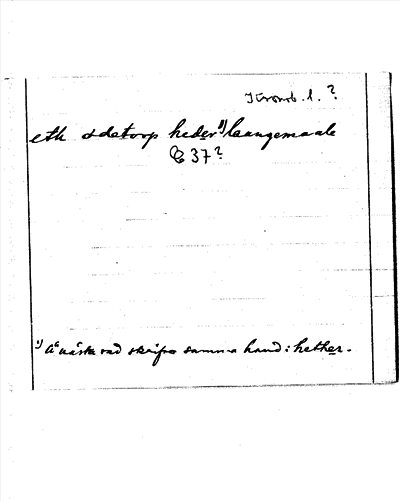 Kronob. l. ?
eth ødetorp heder 1) laangemaale
C 37?
1) Å nästa rad skrifves samma hand: hether.